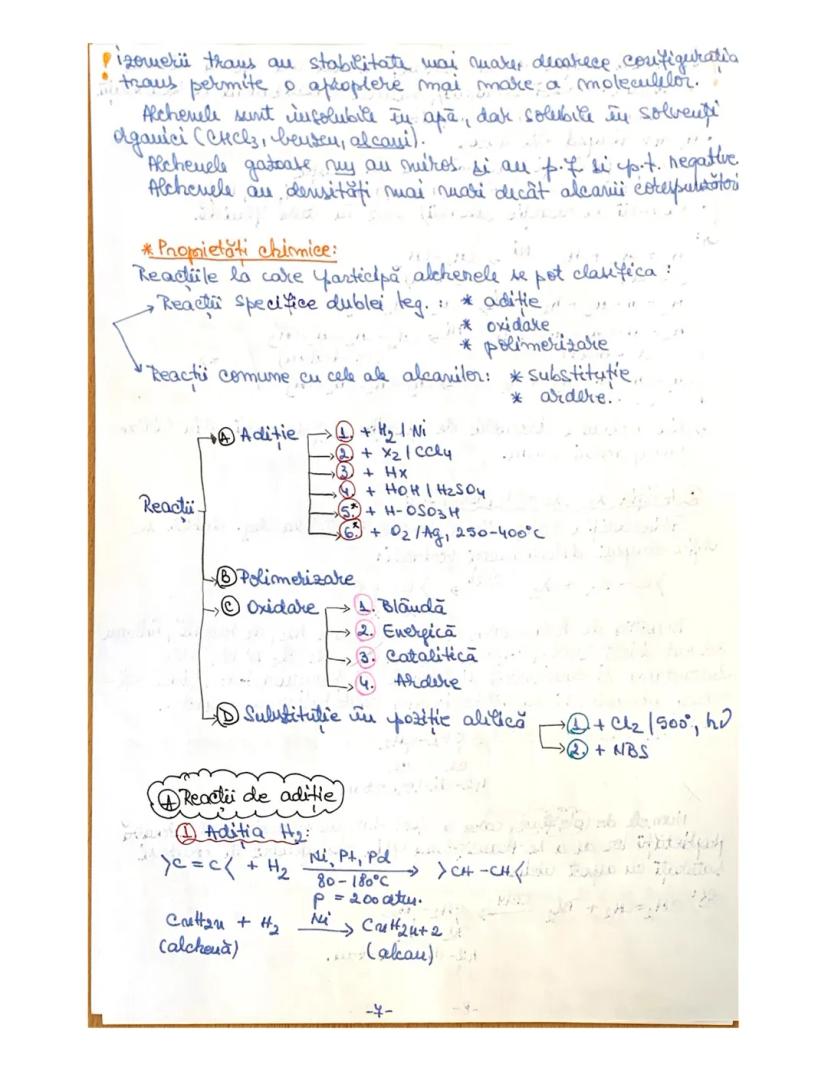 ! izomerii trans au stabilitate mai mare, deoarece configurația
trans permite o apropiere mai mare a moleculelor.
Alchenele sunt insolubile în apă, dar solubile în solvenți
organici (CHCl3, benzen, alcani).
Alchenele gazoase nu au miros și au p.f. și p.t. negative.
Alchenele au densități mai mari decât alcanii corespunzători
* Proprietăți chimice:
Reacțiile la care participă alchenele se pot clasifica :
Reactii specifice dublei leg. : * aditie
* oxidare
* polimerizare
Reactii comune cu cele ale alcanilor: * substituție
* ardere.
Ⓐ Adiție ① + H2 / Ni
② + X2 / CCl4
③ + HX
④ + HOH / H2SO4
Reactii 5* + H-OSO3H
6* + O2 / Ag, 250-400°C
Ⓑ Polimerizare
Ⓒ Oxidare 1. Blândă
2. Energică
3. Catalitică
4. Ardere
Ⓓ Substituție în poziție alilică ① + Cl2 / 500°, hν
② + NBS
Ⓐ Reactii de aditie
① Aditia H2:
>C = C< + H2 Ni, Pt, Pd → >CH - CH<
80 - 180°C
p = 200 atm.
CnH2n + H2 Ni → CnH2n+2
(alchenă) (alcan)
-7-